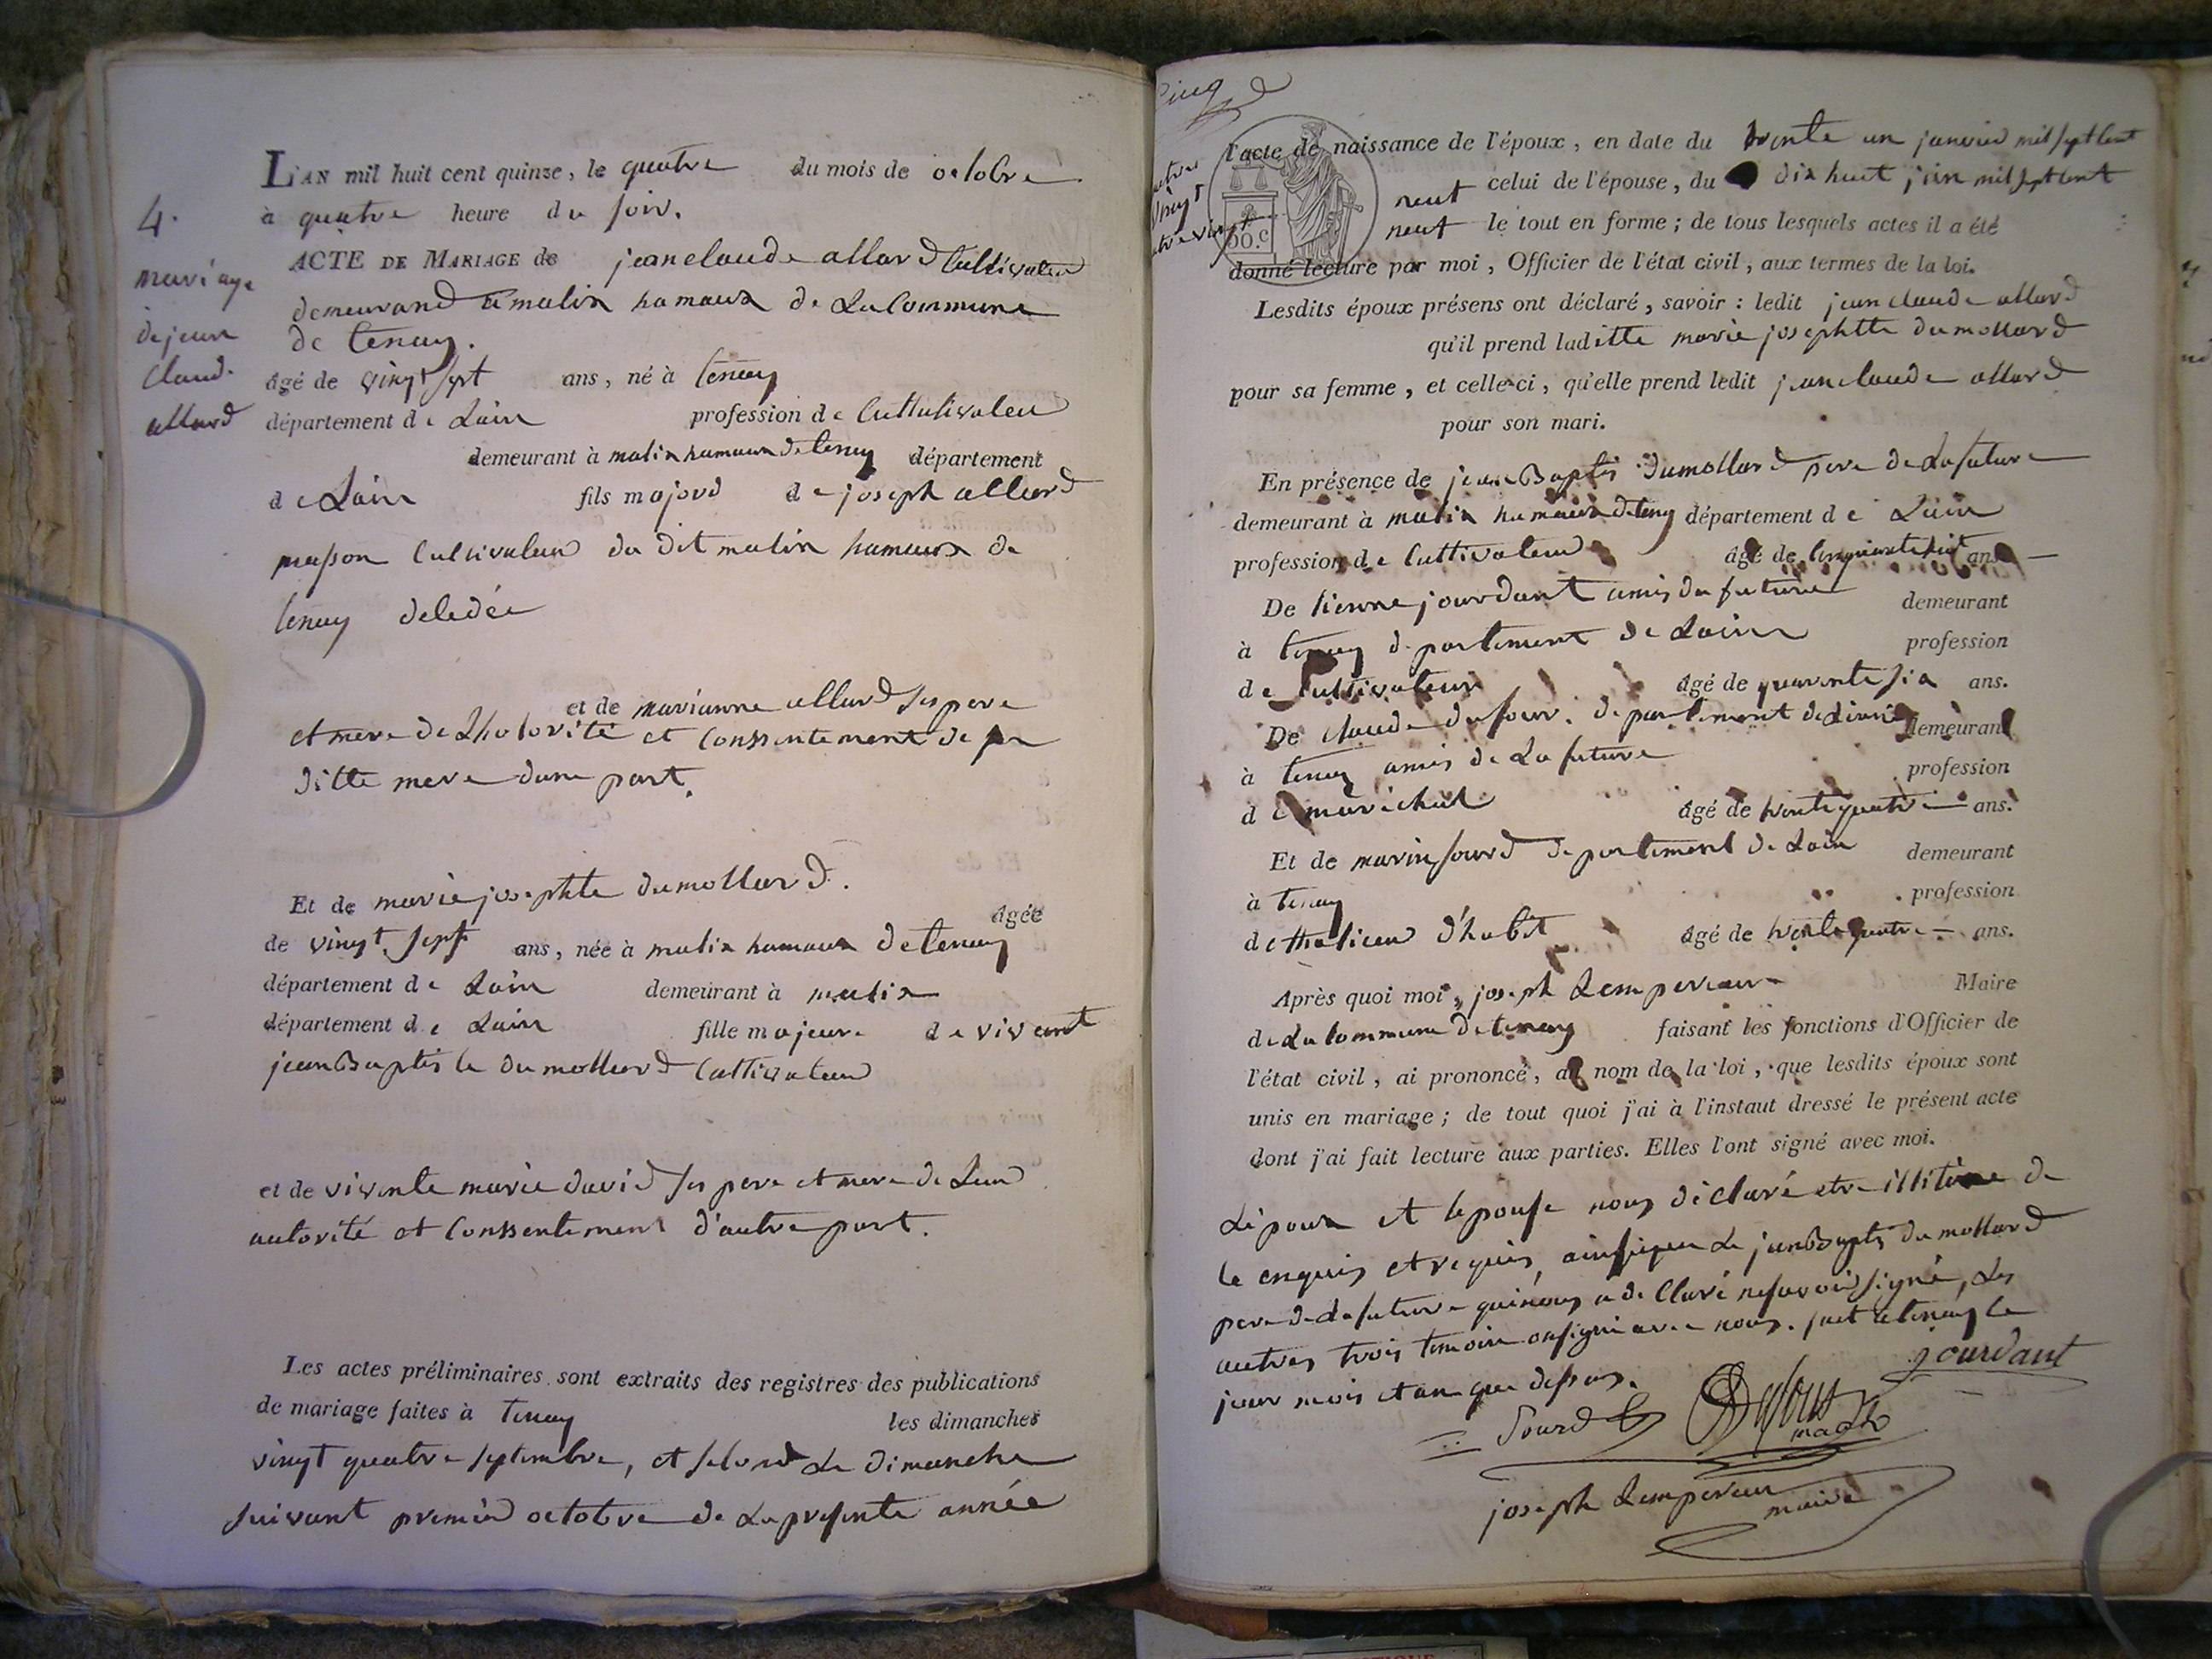 4.
mariage
de jean
Claud.
allard
L'AN mil huit cent quinze, le quatre du mois de octobre
à quatre heure du soir.
ACTE DE MARIAGE de jean claude allard Cultivateur
demeurand a malix hamaux de La Commune
de tenay.
âgé de vingt sept ans, né à tenay
département de Lain profession de Cultulivateu
demeurant à malix hamaux de tenay département
de Lain fils majord de joseph allard
masson Cultivateur du dit malix hamaux de
tenay
et de marianne allard ses pere
et mere de et Conssentement de
ditte mere dune part.
Et de marie josephte dumollard.
âgée
de vingt sept ans, née à malix hamaux de tenay
département de Lain demeurant à malix
département de Lain fille majeure de vivant
jean Baptiste dumollard Cultivateur
et de vivente marie david ses pere et mere de Leur
autorité et Conssentement d'autre part.
Les actes préliminaires sont extraits des registres des publications
de mariage faites à tenay les dimanches
vingt quatre septembre, et selond Le dimanche
suivant premier octobre de La presente année
l'acte de naissance de l'époux, en date du trente un janvier mil sept Cent
neuf celui de l'épouse, du dix huit juin mil sept Cent
neuf le tout en forme; de tous lesquels actes il a été
donné lecture par moi, Officier de l'état civil, aux termes de la loi.
Lesdits époux présens ont déclaré, savoir: ledit jean claude allard
qu'il prend laditte marie josephtte dumollard
pour sa femme, et celle-ci, qu'elle prend ledit jean claude allard
pour son mari.
En présence de jean Baptis dumollard pere de La future
demeurant à malix hamaux de tenay département de Lain
profession de Cultivateur âgé de ans
De tienne jourdant amis du future demeurant
à tenay departement de Lain profession
de Cultivateur âgé de quarente six ans.
De claude dufour. departement de demeurant
à tenay amis de La future profession
de marichal âgé de trente quatre ans.
Et de marin sourd departement de Lain demeurant
à tenay profession
de thalieur d'habit âgé de trente quatre ans.
Après quoi moi, joseph Lempereur Maire
de La Commune de tenay faisant les fonctions d'Officier de
l'état civil, ai prononcé, au nom de la loi, que lesdits époux sont
unis en mariage; de tout quoi j'ai à l'instaut dressé le présent acte
dont j'ai fait lecture aux parties. Elles l'ont signé avec moi.
Lépoux et lepouse nous déclaré etre illitere de
le enquis et requis, ainsi que Le jean Bapts dumollard
pere de La future qui nous a declaré ne savoir signé, Les
autres trois temoin on signé avec nous. fait a tenay Le
jour mois et an que dessus.
jourdant
Sourd
joseph Lempereur
maire